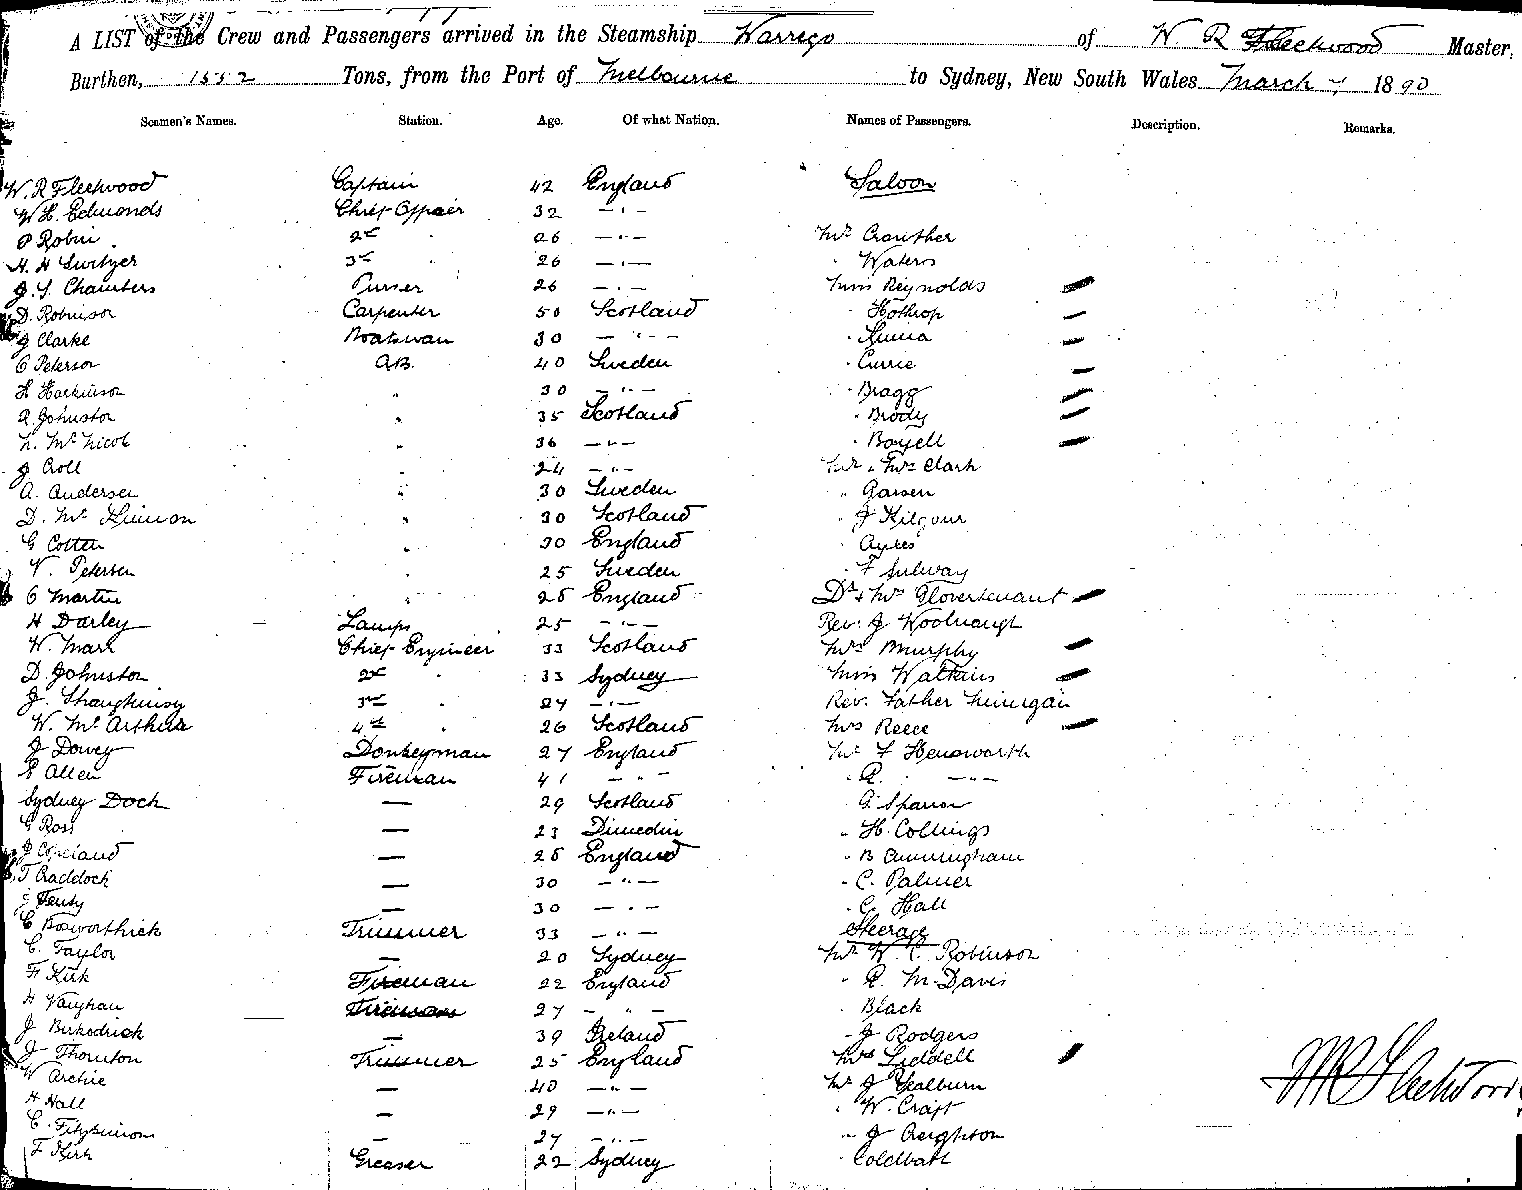 A LIST of the Crew and Passengers arrived in the Steamship Warrego of W R Fleetwood Master,
Burthen, 1552 Tons, from the Port of Melbourne to Sydney, New South Wales March 7 1890
Seamen's Names. Station. Age. Of what Nation. Names of Passengers. Description. Remarks.
W. R Fleetwood Captain 42 England Saloon
W H. Edmonds Chief Officer 32 — " —
P Robin 2nd " 26 — " — Mr Crowther
H. H Switzer 3rd " 26 — " — " Waters
J. S. Chambers Purser 26 — " — Miss Reynolds
D. Robinson Carpenter 50 Scotland " Hothrop
J Clarke Boatswan 30 — " —
C Peterson A.B. 40 Sweden " Currie
H Harkinson " 30 — " — " Bragg
R Johnston " 35 Scotland " Brody
N. McNicol " 36 — " — " Boyell
J Croll " 24 — " — Mr & Mrs Clark
A. Andersen " 30 Sweden "
D. Mc Kinnon " 30 Scotland " J Kilgour
G Cotter " 30 England " Ayres
V. Petersen " 25 Sweden " F
C Martin " 25 England Dr & Mrs
H Darley Lamps 25 — " — Rev. J Woolnough
W. Marr Chief Engineer 33 Scotland Mrs Murphy
D. Johnston 2nd " 33 Sydney Miss Watkins
J. Shaughnisy 3rd " 27 — " — Rev. Father Finnegan
W. Mc Arthur 4th " 26 Scotland Mrs Reece
J Dowey Donkeyman 27 England Mr F Hensworth
E Allen Fireman 41 — " — " R. — " —
Sydney Dock — 29 Scotland " G. Sparrow
G Ross — 23 Dunedin " H. Collings
J Copeland — 25 England " B Cunningham
T Craddock — 30 — " — " C. Palmer
J Fenty — 30 — " — " C. Hall
C Bosworthick Trimmer 33 — " — Steerage
C. Taylor — 20 Sydney Mr W. C. Robinson
F Kirk Fireman 22 England " R. M. Davis
H Vaughan Fireman 27 — " — " Black
J Birkedrick — 39 Ireland " J Rodgers
J Thornton Trimmer 25 England Mrs Liddell
W Archie — 40 — " — Mr J
H Hall — 29 — " — " W. Craft
C. Fitzsimons — 27 — " — " J Creighton
F Kirk Greaser 22 Sydney " Coldbath
W R Fleetwood